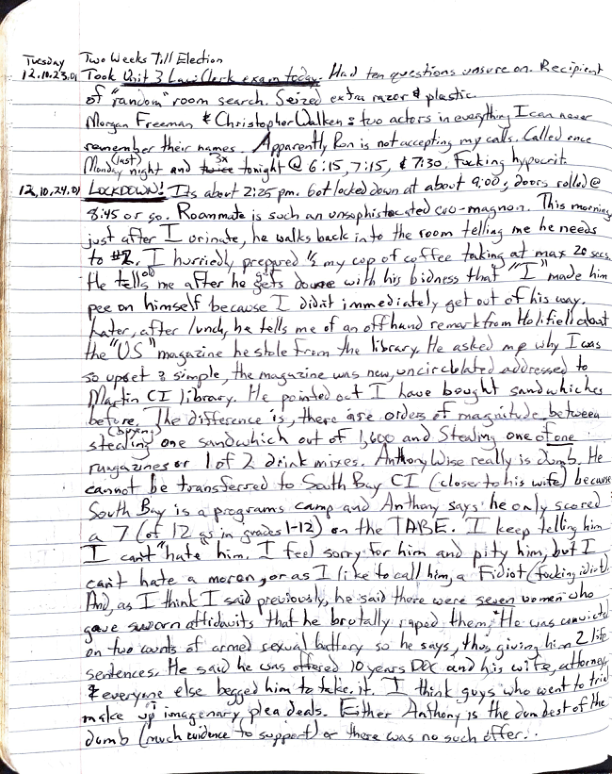 Tuesday Two Weeks Till Election
12.10.23.01 Took Unit 3 Law Clerk exam today. Had ten questions unsure on. Recipient
of "random" room search. Seized extra razor & plastic.
Morgan Freeman & Christopher Walken: two actors in everything I can never
remember their names. Apparently Ron is not accepting my calls. Called once
(last)
Monday night and twice 3x tonight @ 6:15, 7:15, & 7:30. Fucking hypocrit.
12.10.24.01 LOCKDOWN! Its about 2:25 pm. Got locked down at about 9:00; doors rolled @
8:45 or so. Roommate is such an unsophisticated cro-magnon. This morning
just after I urinate, he walks back into the room telling me he needs
to #2. I hurriedly prepared ½ my cup of coffee taking at max 20 secs.
He tells me after he gets done with his bidness that "I" made him
pee on himself because I didn't immediately get out of his way.
Later, after lunch, he tells me of an offhand remark from Holifield about
the "US" magazine he stole from the library. He asked me why I was
so upset & simple, the magazine was new, uncirculated addressed to
Martin CI library. He pointed out I have bought sandwhiches
before. The difference is, there are orders of magnitude between
(buying)
stealing one sandwhich out of 1,600 and stealing one of one
magazines or 1 of 2 drink mixes. Anthony Wise really is dumb. He
cannot be transferred to South Bay CI (closer to his wife) because
South Bay is a programs camp and Anthony says he only scored
a 7 (of 12 as in grades 1-12) on the TABE. I keep telling him
I can't "hate him. I feel sorry for him and pity him, but I
can't hate a moron, or as I like to call him, a Fidiot (fucking idiot).
And, as I think I said previously, he said there were seven women who
gave sworn affidavits that he brutally raped them. He was convicted
on two counts of armed sexual battery so he says, thus giving him 2 life
sentences. He said he was offered 10 years DOC and his wife, attorney
& everyone else begged him to take it. I think guys who went to trial
make up imagenary plea deals. Either Anthony is the dumbest of the
dumb (much evidence to support) or there was no such offer..